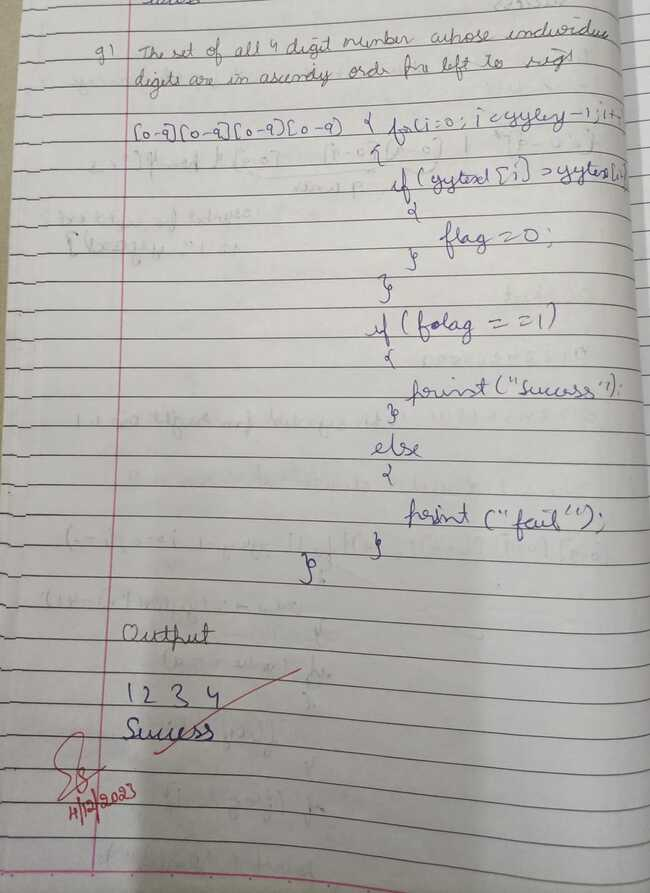 g) The set of all 4 digit number whose individue
digits are in ascendy orde fro left to righ
[0-9][0-9][0-9][0-9] { for(i=0; i<yyley-1;i+
{
if (yytext[i] > yytex[i
{
flag = 0;
}
}
if (folag = =1)
{
print("Success");
}
else
{
print ("fail");
}
}
Output
1 2 3 4
Success
4/12/2023